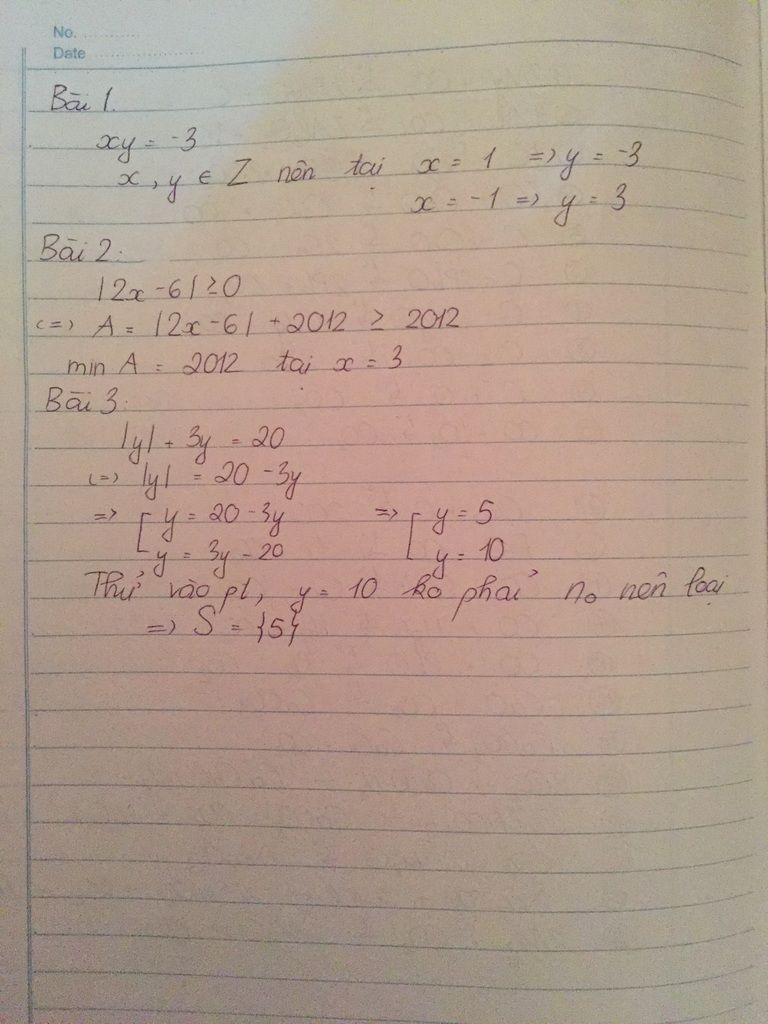 No. ............
Date ........................
Bài 1.
xy = -3
x, y ∈ Z nên tại x = 1 => y = -3
x = -1 => y = 3
Bài 2:
|2x - 6| ≥ 0
<=> A = |2x - 6| + 2012 ≥ 2012
min A = 2012 tại x = 3
Bài 3:
|y| + 3y = 20
<=> |y| = 20 - 3y
=> [ y = 20 - 3y => [ y = 5
y = 3y - 20 y = 10
Thử vào pt, y = 10 ko phải no nên loại
=> S = {5}